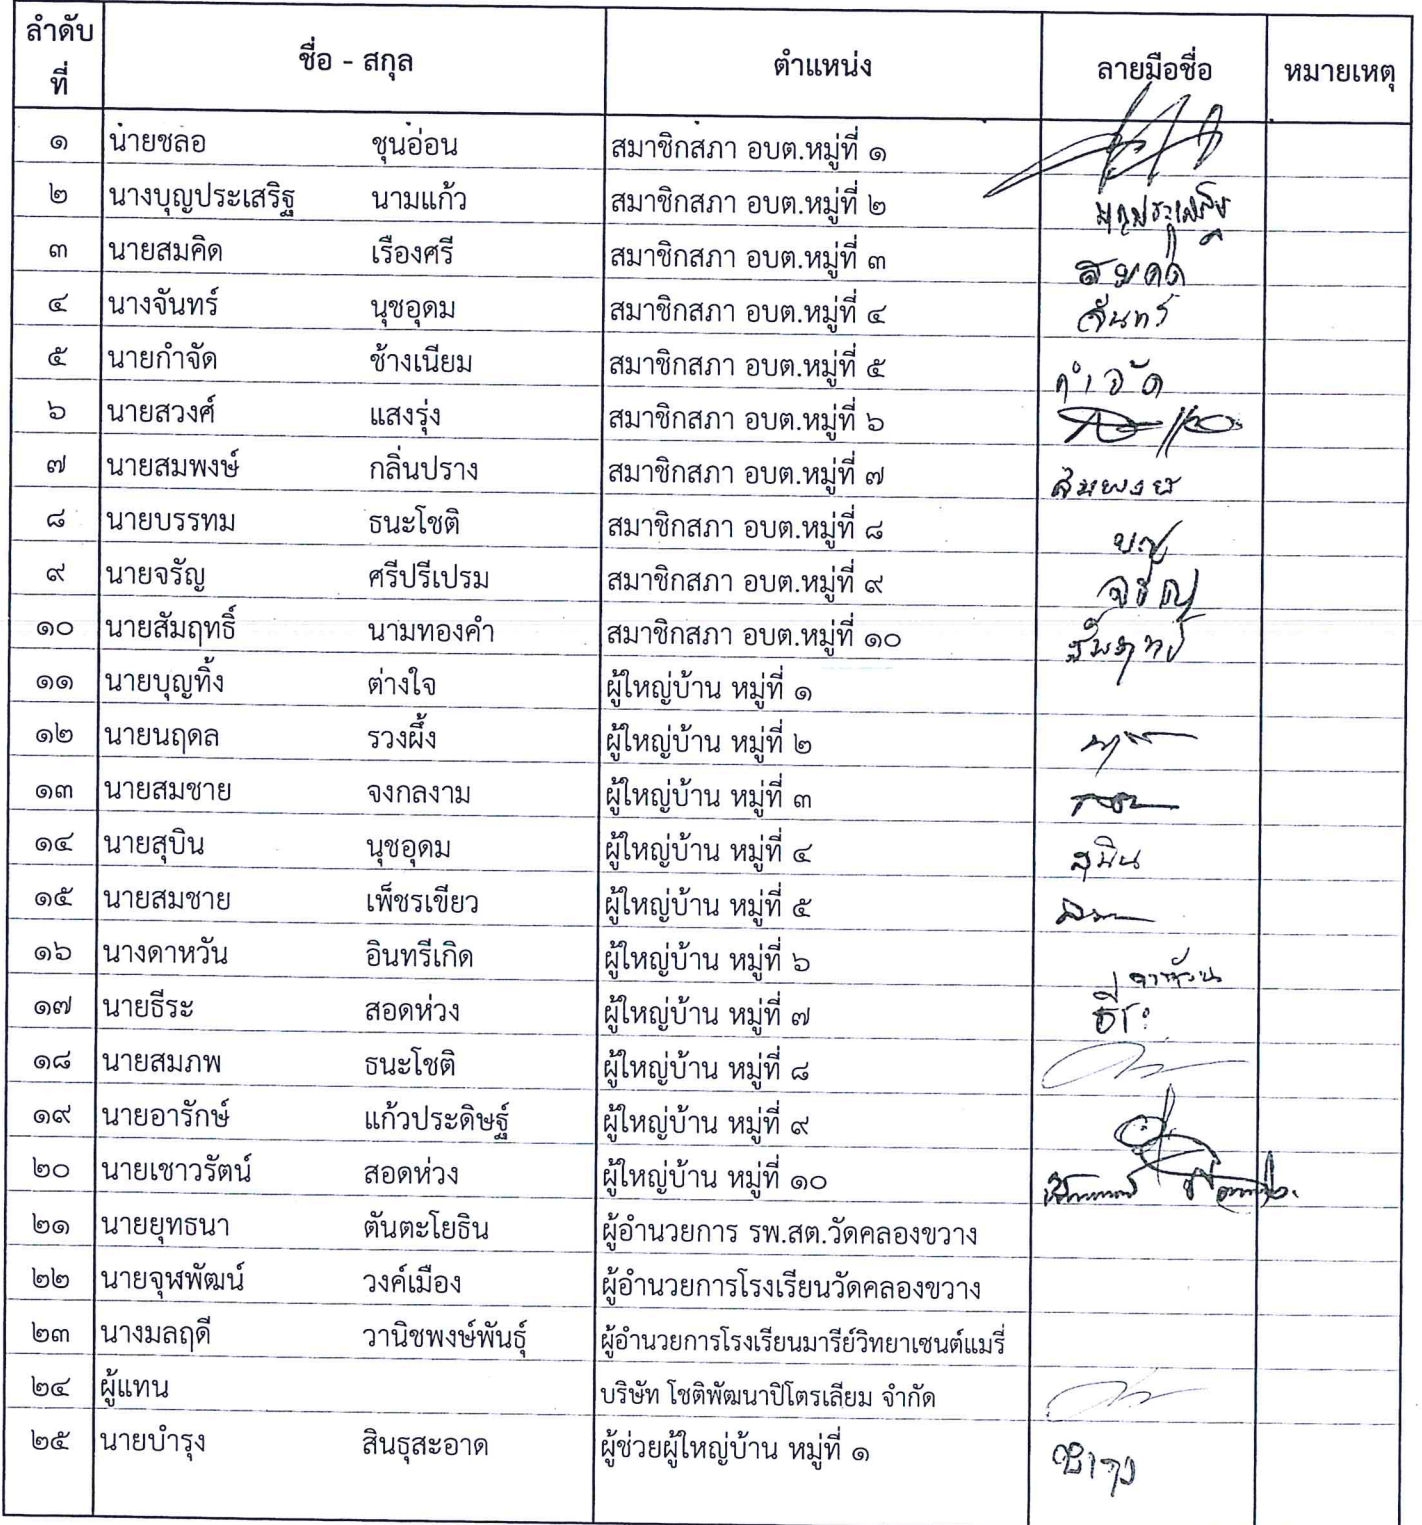 ลำดับที่ ชื่อ - สกุล ตำแหน่ง ลายมือชื่อ หมายเหตุ
๑ นายชลอ ชุนอ่อน สมาชิกสภา อบต.หมู่ที่ ๑
๒ นางบุญประเสริฐ นามแก้ว สมาชิกสภา อบต.หมู่ที่ ๒ บุญประเสริฐ
๓ นายสมคิด เรืองศรี สมาชิกสภา อบต.หมู่ที่ ๓ สมคิด
๔ นางจันทร์ นุชอุดม สมาชิกสภา อบต.หมู่ที่ ๔ จันทร์
๕ นายกำจัด ช้างเนียม สมาชิกสภา อบต.หมู่ที่ ๕ กำจัด
๖ นายสวงศ์ แสงรุ่ง สมาชิกสภา อบต.หมู่ที่ ๖
๗ นายสมพงษ์ กลิ่นปราง สมาชิกสภา อบต.หมู่ที่ ๗ สมพงษ์
๘ นายบรรทม ธนะโชติ สมาชิกสภา อบต.หมู่ที่ ๘
๙ นายจรัญ ศรีปรีเปรม สมาชิกสภา อบต.หมู่ที่ ๙ จรัญ
๑๐ นายสัมฤทธิ์ นามทองคำ สมาชิกสภา อบต.หมู่ที่ ๑๐ สัมฤทธิ์
๑๑ นายบุญทิ้ง ต่างใจ ผู้ใหญ่บ้าน หมู่ที่ ๑
๑๒ นายนฤดล รวงผึ้ง ผู้ใหญ่บ้าน หมู่ที่ ๒
๑๓ นายสมชาย จงกลงาม ผู้ใหญ่บ้าน หมู่ที่ ๓
๑๔ นายสุบิน นุชอุดม ผู้ใหญ่บ้าน หมู่ที่ ๔ สุบิน
๑๕ นายสมชาย เพ็ชรเขียว ผู้ใหญ่บ้าน หมู่ที่ ๕
๑๖ นางดาหวัน อินทรีเกิด ผู้ใหญ่บ้าน หมู่ที่ ๖ ดาหวัน
๑๗ นายธีระ สอดห่วง ผู้ใหญ่บ้าน หมู่ที่ ๗ ธีระ
๑๘ นายสมภพ ธนะโชติ ผู้ใหญ่บ้าน หมู่ที่ ๘
๑๙ นายอารักษ์ แก้วประดิษฐ์ ผู้ใหญ่บ้าน หมู่ที่ ๙
๒๐ นายเชาวรัตน์ สอดห่วง ผู้ใหญ่บ้าน หมู่ที่ ๑๐
๒๑ นายยุทธนา ตันตะโยธิน ผู้อำนวยการ รพ.สต.วัดคลองขวาง
๒๒ นายจุฬพัฒน์ วงค์เมือง ผู้อำนวยการโรงเรียนวัดคลองขวาง
๒๓ นางมลฤดี วานิชพงษ์พันธุ์ ผู้อำนวยการโรงเรียนมารีย์วิทยาเซนต์แมรี่
๒๔ ผู้แทน บริษัท โชติพัฒนาปิโตรเลียม จำกัด
๒๕ นายบำรุง สินธุสะอาด ผู้ช่วยผู้ใหญ่บ้าน หมู่ที่ ๑ บำรุง